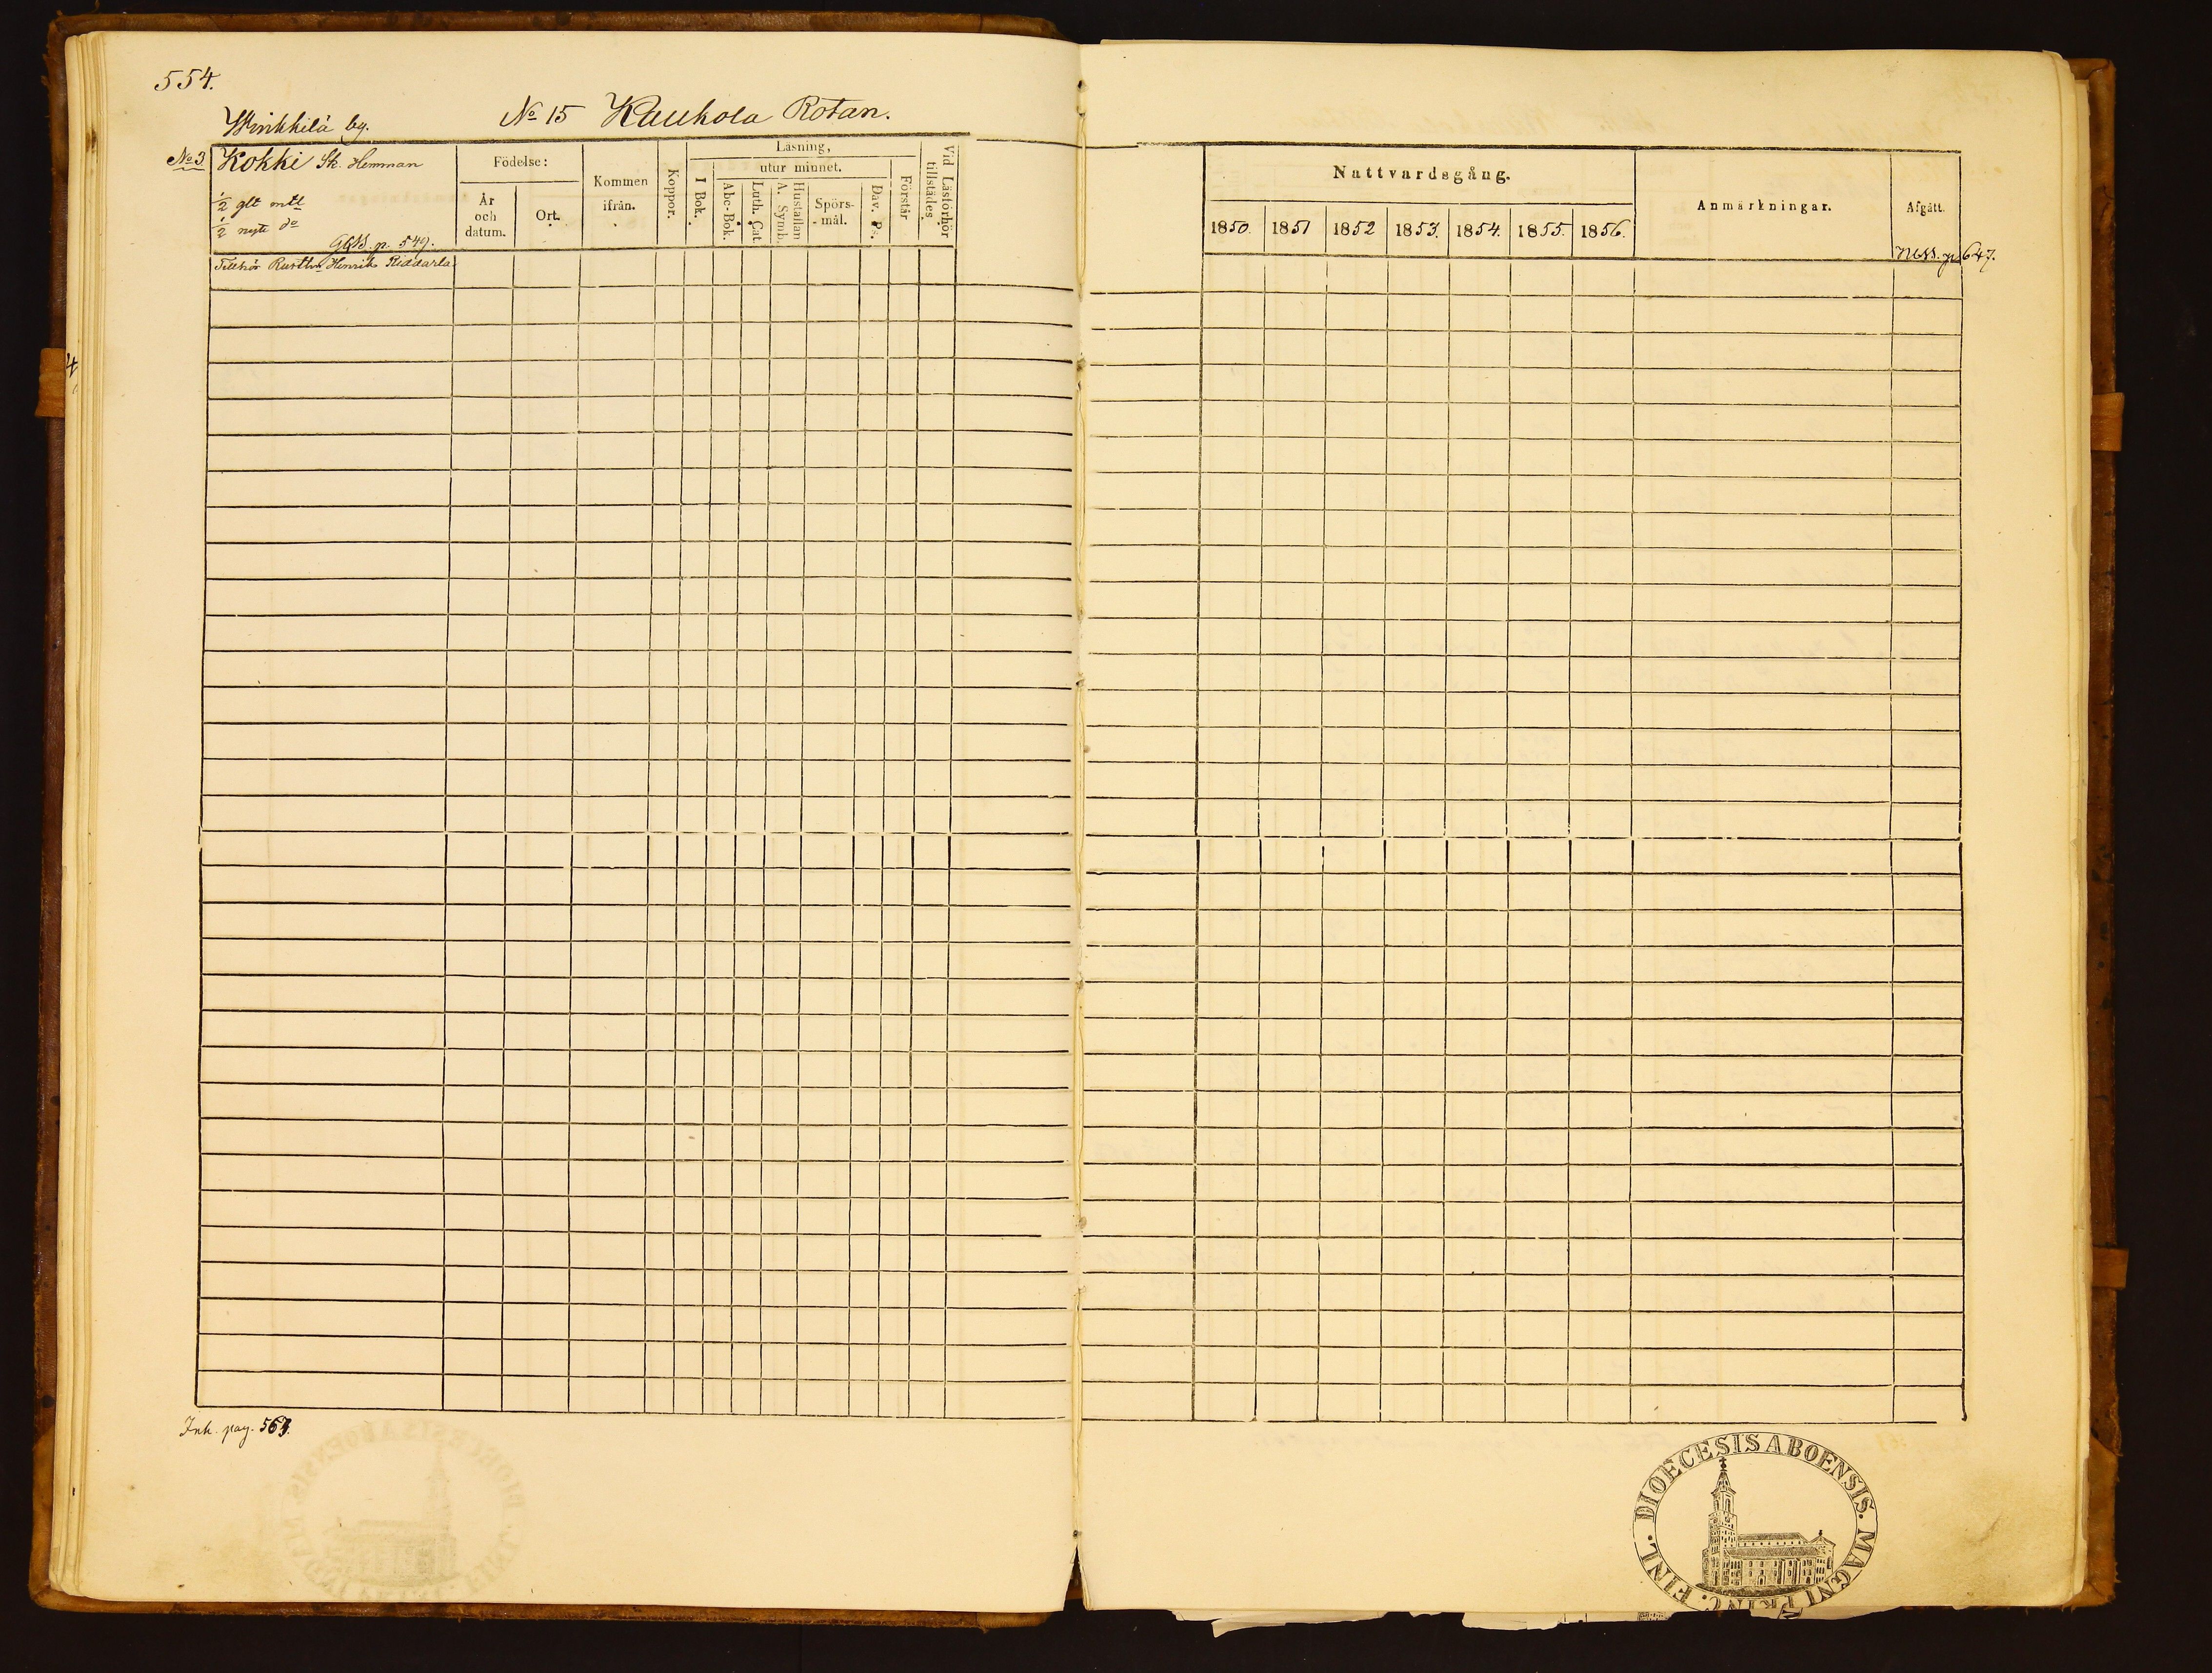 554.
Winkkilä by.
No 15 Kaukola Rotan.
No 3
Kokki Sk. Hemman
1/2 glt mtl
1/2 nytt do
GKB. p. 549.
Födelse:
År
och
datum.
Ort.
Kommen
ifrån.
Koppor.
Läsning,
utur minnet.
I Bok.
Abc-Bok.
Luth. Cat.
Hustaflan
A. Symb.
Spörs-
-mål.
Dav. Ps.
Förstår
Vid Läsförhör
tillstädes.
Nattvardsgång.
1850. 1851 1852 1853. 1854. 1855. 1856.
Anmärkningar.
Afgått.
p. 647.
Tillhör Rusthn Henrik Riddarla
Ink. pag. 563.
DIOECESIS ABOENSIS. MAGNI PRINC. FINL.